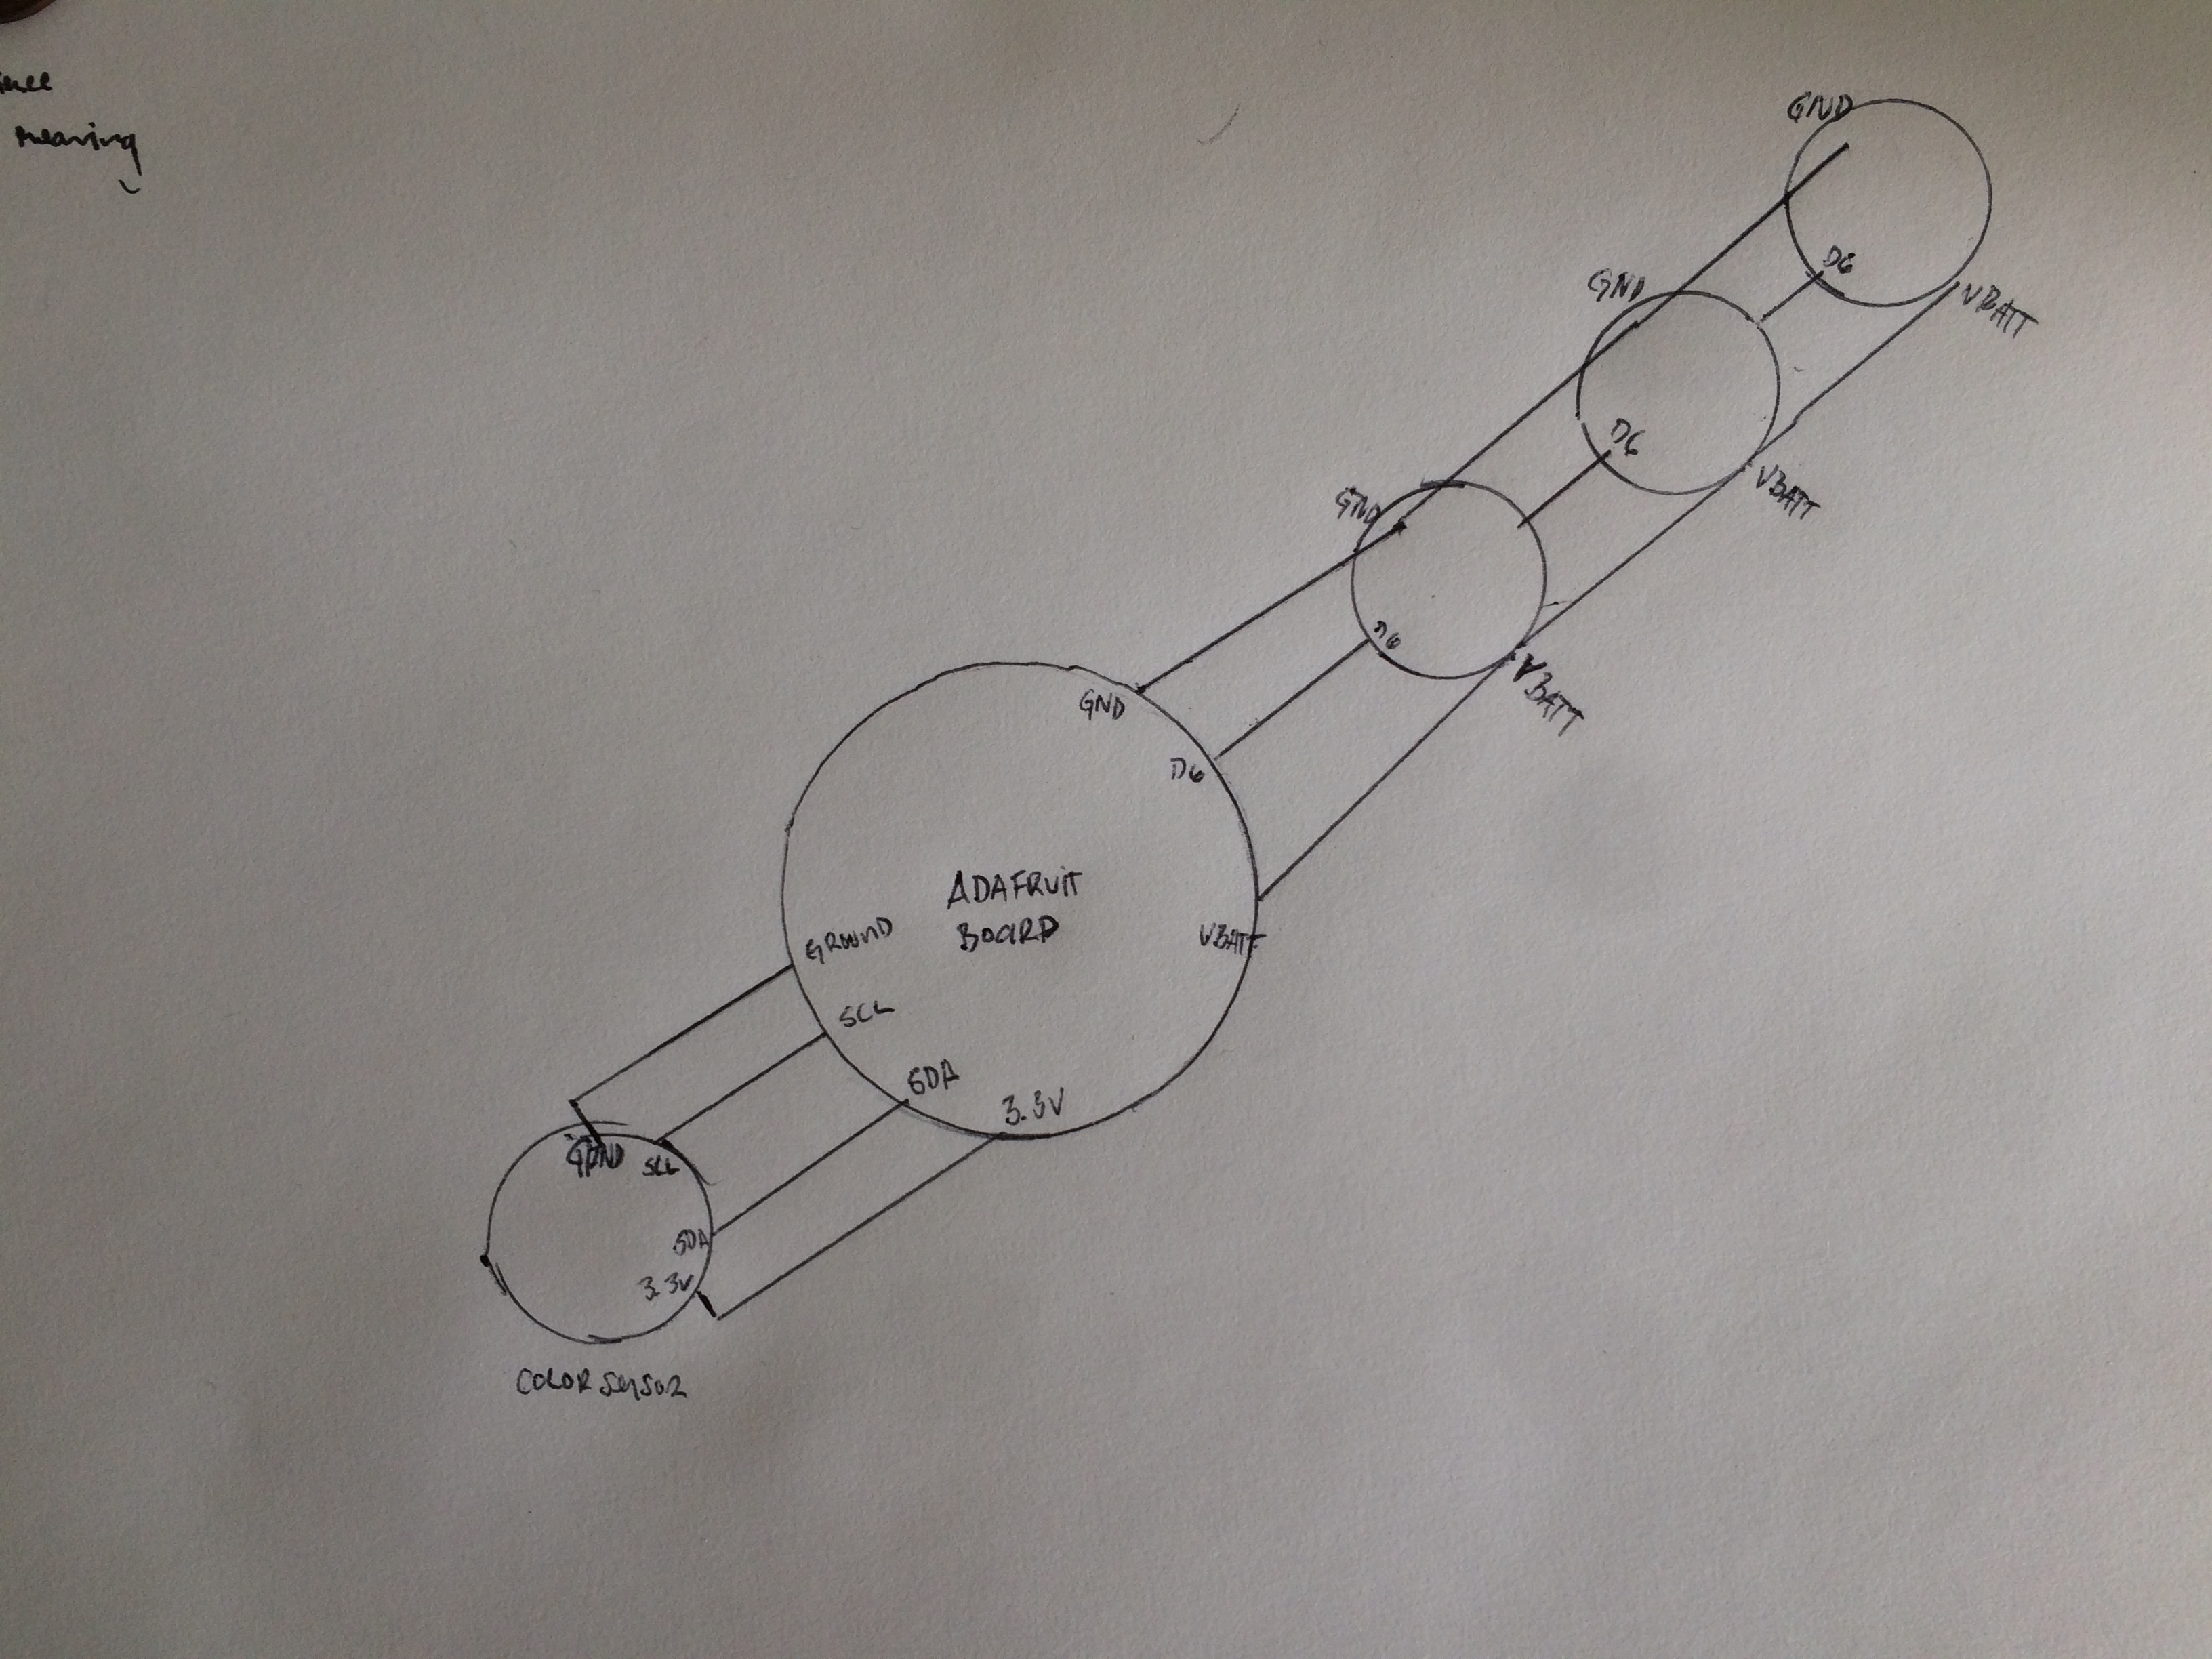 meaning
GND
D6
VBATT
GND
D6
VBATT
GND
D6
VBATT
GND
D6
ADAFRUIT
BOARD
VBATT
GROUND
SCL
SDA
3.3V
GRND
SCL
SDA
3.3V
COLOR SENSOR